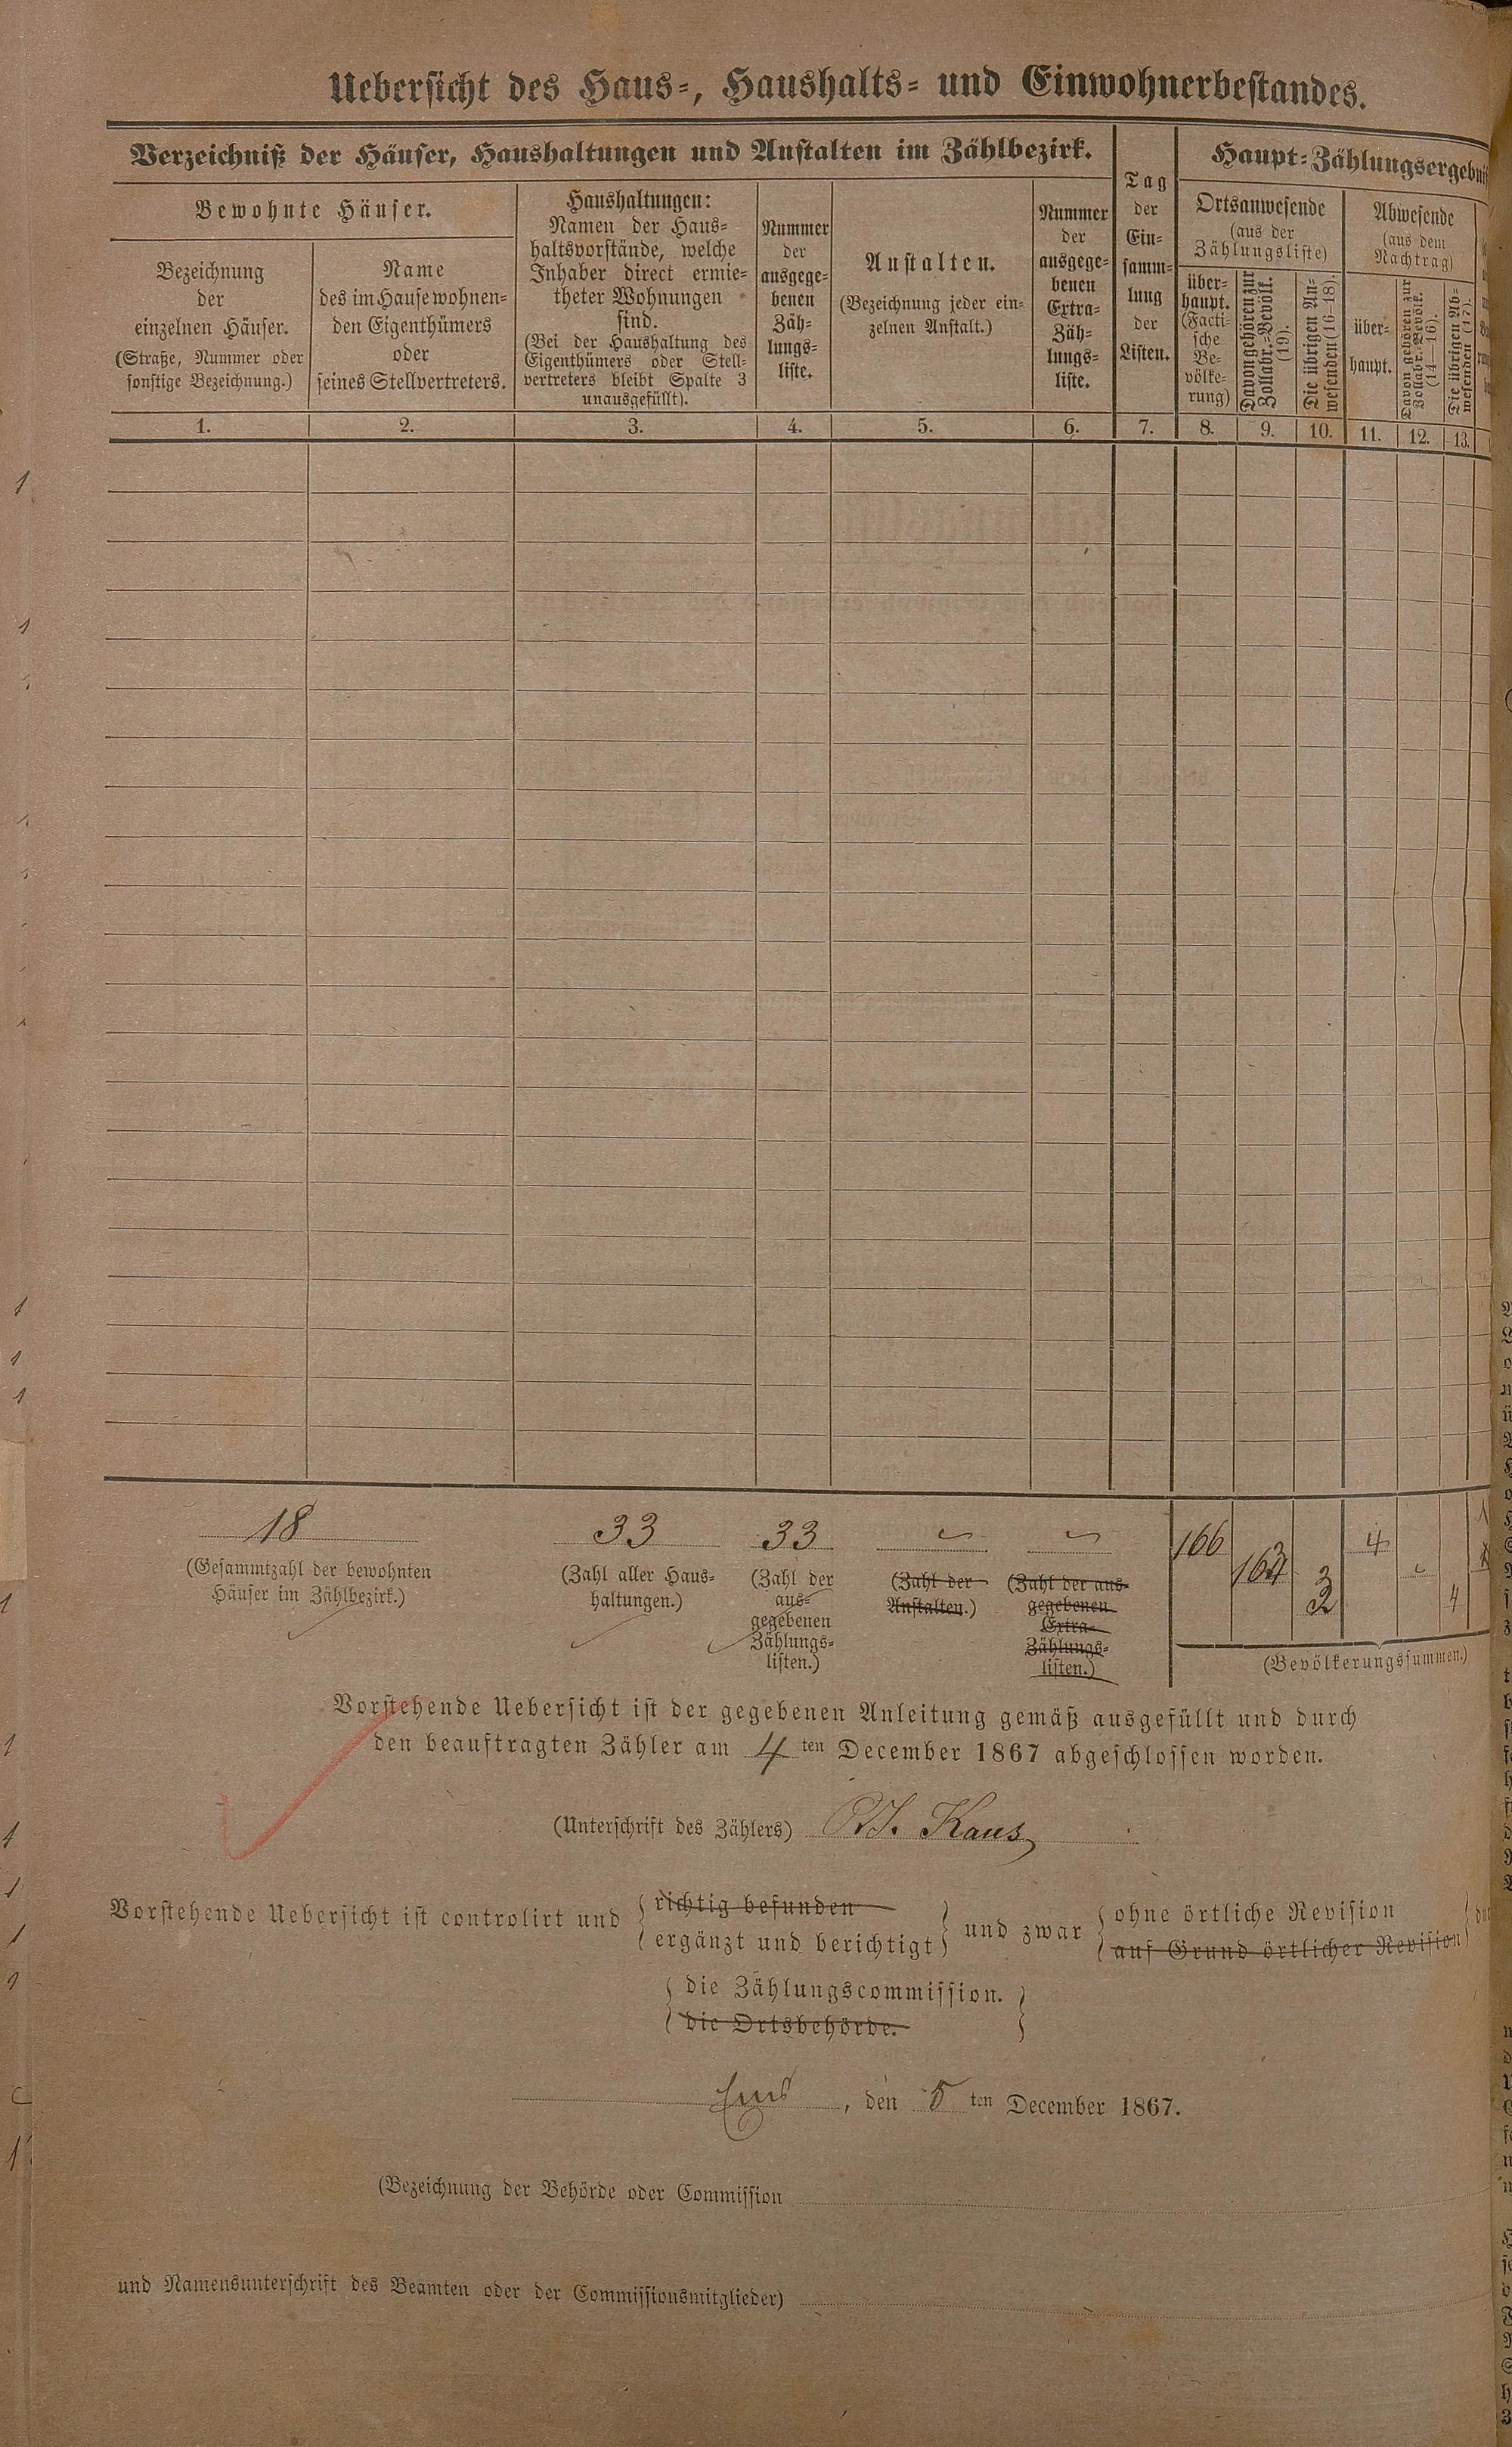 Uebersicht des Haus-, Haushalts- und Einwohnerbestandes.
Verzeichniß der Häuser, Haushaltungen und Anstalten im Zählbezirk.
Bewohnte Häuser.
Bezeichnung
der
einzelnen Häuser.
(Straße, Nummer oder
sonstige Bezeichnung.)
Name
des im Hause wohnen-
den Eigenthümers
oder
seines Stellvertreters.
Haushaltungen:
Namen der Haus-
haltsvorstände, welche
Inhaber direct ermie-
theter Wohnungen
sind.
(Bei der Haushaltung des
Eigenthümers oder Stell-
vertreters bleibt Spalte 3
unausgefüllt).
Nummer
der
ausgege-
benen
Zäh-
lungs-
liste.
Anstalten.
(Bezeichnung jeder ein-
zelnen Anstalt.)
Nummer
der
ausgege-
benen
Extra-
Zäh-
lungs-
liste.
Tag
der
Ein-
samm-
lung
der
Listen.
Haupt-Zählungsergebniß
Ortsanwesende
(aus der
Zählungsliste)
über-
haupt.
(Facti-
sche
Be-
völke-
rung)
Davon gehören zur
Zollabr.-Bevölk.
(19).
Die übrigen An-
wesenden (16–18).
Abwesende
(aus dem
Nachtrag)
über-
haupt.
Davon gehören zur
Zollabr.-Bevölk.
(14–16).
Die übrigen Ab-
wesenden (17).
1. 2. 3. 4. 5. 6. 7. 8. 9. 10. 11. 12. 13.
18 33 33 166 4
3
2 4
(Gesammtzahl der bewohnten
Häuser im Zählbezirk.)
(Zahl aller Haus-
haltungen.)
(Zahl der
aus-
gegebenen
Zählungs-
listen.)
(Zahl der
Anstalten.)
(Zahl der aus-
gegebenen
Extra-
Zählungs-
listen.)
(Bevölkerungssummen.)
Vorstehende Uebersicht ist der gegebenen Anleitung gemäß ausgefüllt und durch
den beauftragten Zähler am 4 ten December 1867 abgeschlossen worden.
(Unterschrift des Zählers) Kaus
Vorstehende Uebersicht ist controlirt und richtig befunden
ergänzt und berichtigt und zwar ohne örtliche Revision
auf Grund örtlicher Revision
die Zählungscommission.
die Ortsbehörde.
Ems, den 5 ten December 1867.
(Bezeichnung der Behörde oder Commission
und Namensunterschrift des Beamten oder der Commissionsmitglieder)